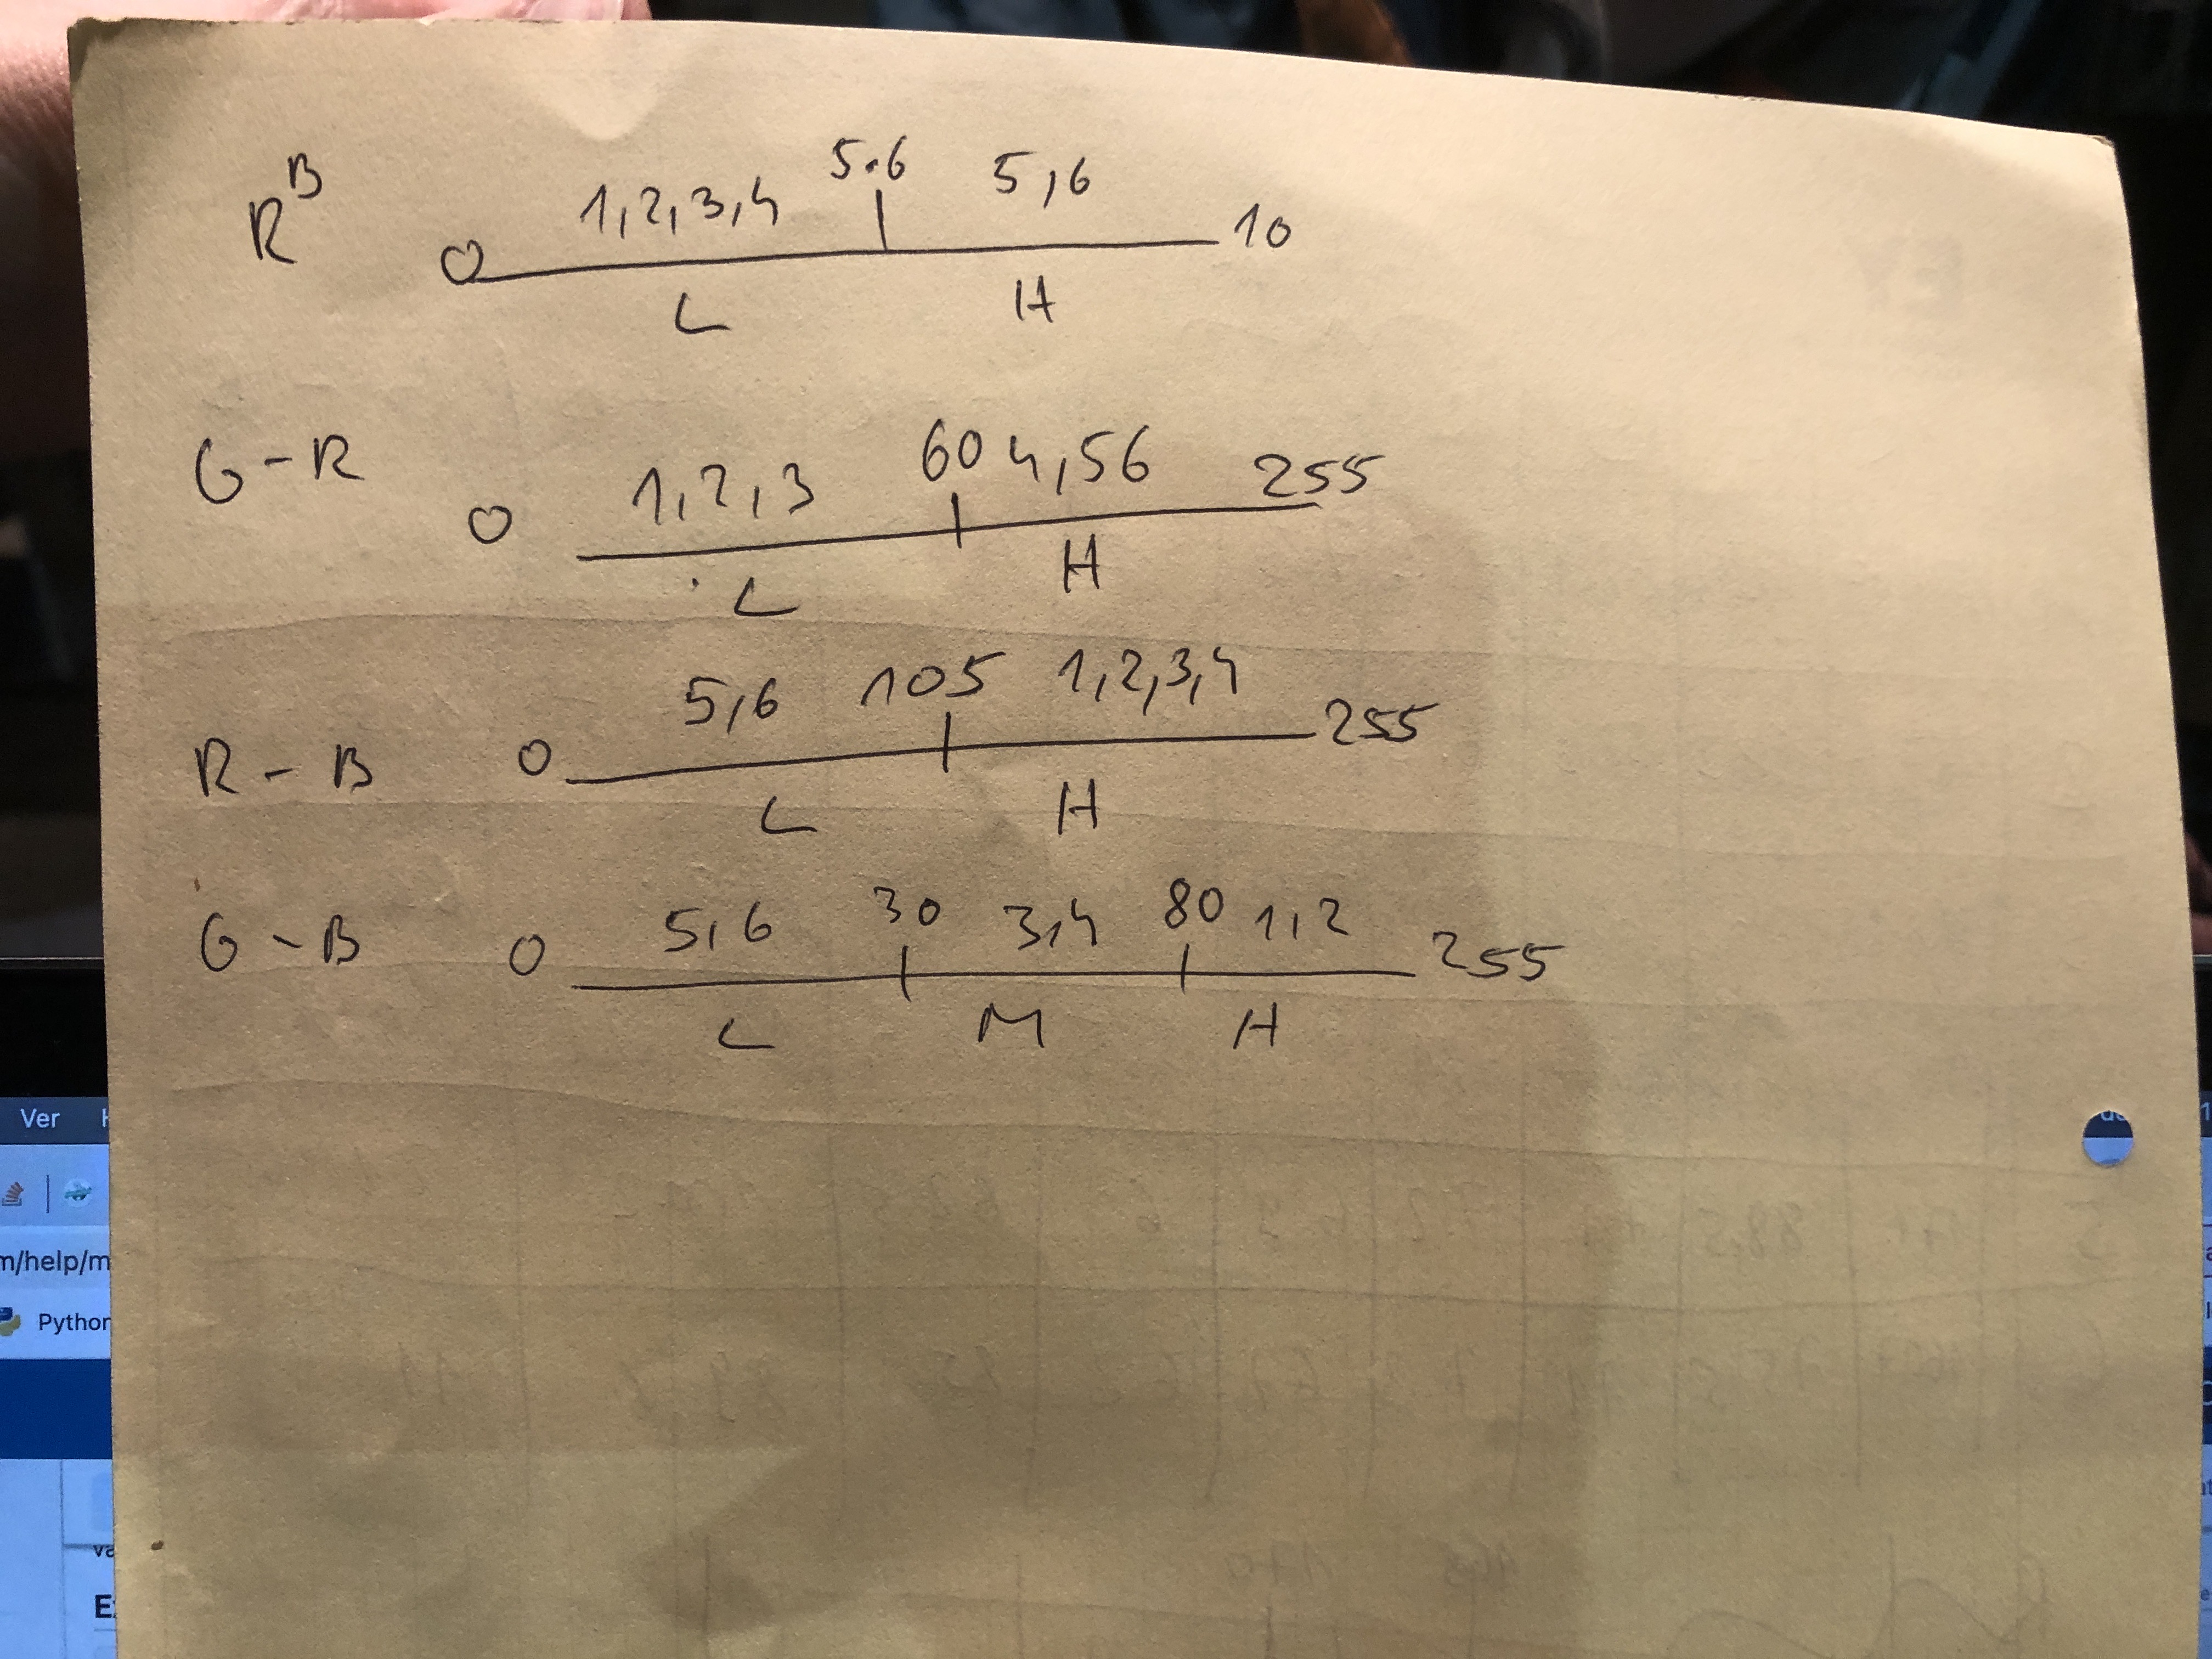 R^B 0 1,2,3,4 5.6 5,6 10
L H
G-R 0 1,2,3 60 4,56 255
L H
R-B 0 5,6 105 1,2,3,4 255
L H
G-B 0 5,6 30 3,4 80 1,2 255
L M H
Ver
m/help/m
Python